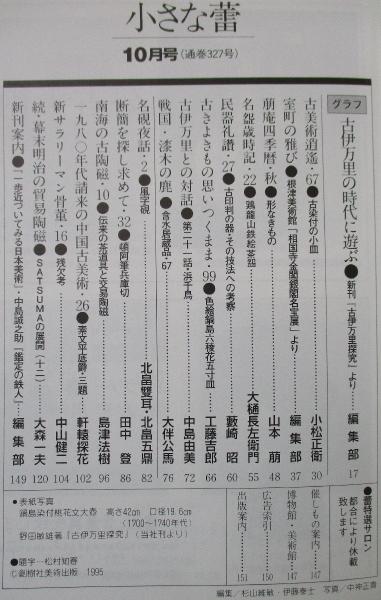 小さな蕾
10月号(通巻327号)
グラフ 古伊万里の時代に遊ぶ●新刊『古伊万里探究』より 編集部 17
古美術逍遙・67●古染付の小皿 小松正衛 30
室町の雅び●根津美術館「相国寺金閣銀閣名宝展」より 編集部 37
萠庵四季暦・秋●形なきもの 山本萠 48
名盌歳時記・22●鶏龍山鉄絵茶盌 大樋長左衛門 55
民器礼讃・27●古印判の器・その技法への考察 藪崎昭 60
古きよきもの思いつくまま・99●色絵鍋島六稜花五寸皿 工藤吉郎 66
古伊万里との対話●第二十一話・浜千鳥 中島由美 72
戦国・漆木の鹿●含水居蔵品・67 大伴公馬 76
名硯夜話・2●風字硯 北畠雙耳・北畠五鼎 82
断簡を探し求めて・32●頓阿筆兵庫切 田中登 86
南海の古陶磁・10●伝来の茶道具と交易陶磁 島津法樹 96
一九八〇年代請来の中国古美術・26●素文平底爵・三題 軒轅探花 102
新サラリーマン骨董・16●残欠考 中山健二 104
続・幕末明治の貿易陶磁●SATSUMAの展開(十二) 大森一夫 120
新刊案内●「一歩近づいてみる日本美術」・中島誠之助「鑑定の鉄人」 編集部 149
催しもの案内 147
博物館・美術館 147
広告索引 150
出版案内 151
●蕾特選サロン
都合により休載
致します
●表紙写真
鍋島染付桃花文大壺 高さ42cm 口径19.6cm
(1700〜1740年代)
野田敏雄著『古伊万里探究』(当社刊より)
●題字―松村知春
©創樹社美術出版 1995
編集/杉山維敏・伊藤泰士 写真/中神正喜